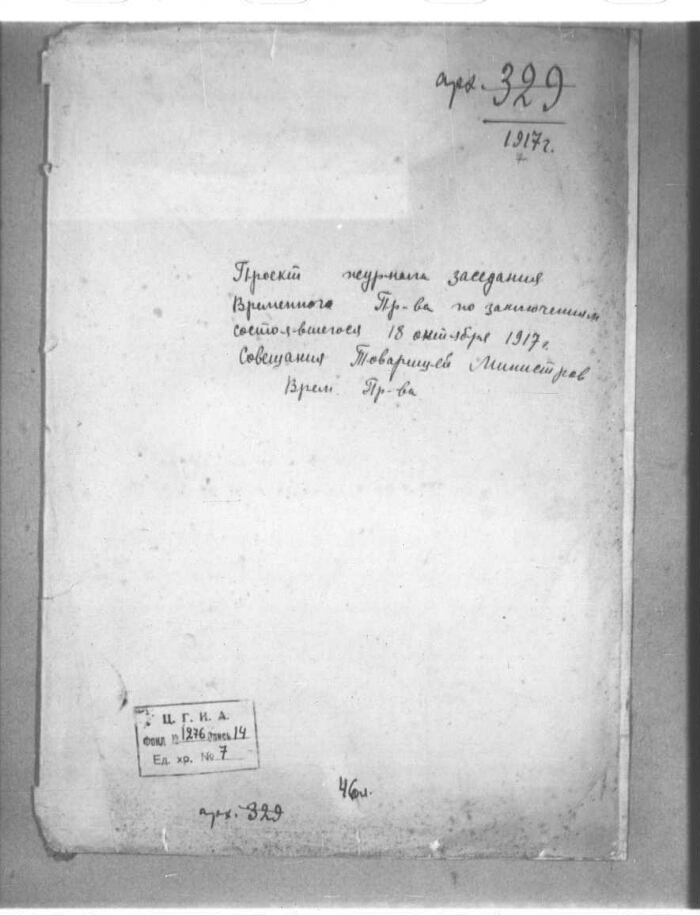 арх. 329
1917 г.
Проект журнала заседания
Временного Пр-ва по заключениям
состоявшегося 18 октября 1917 г.
Совещания Товарищей Министров
Врем. Пр-ва
Ц. Г. И. А.
Фонд № 1276 Опись 14
Ед. хр. № 7
46 л.
арх. 329